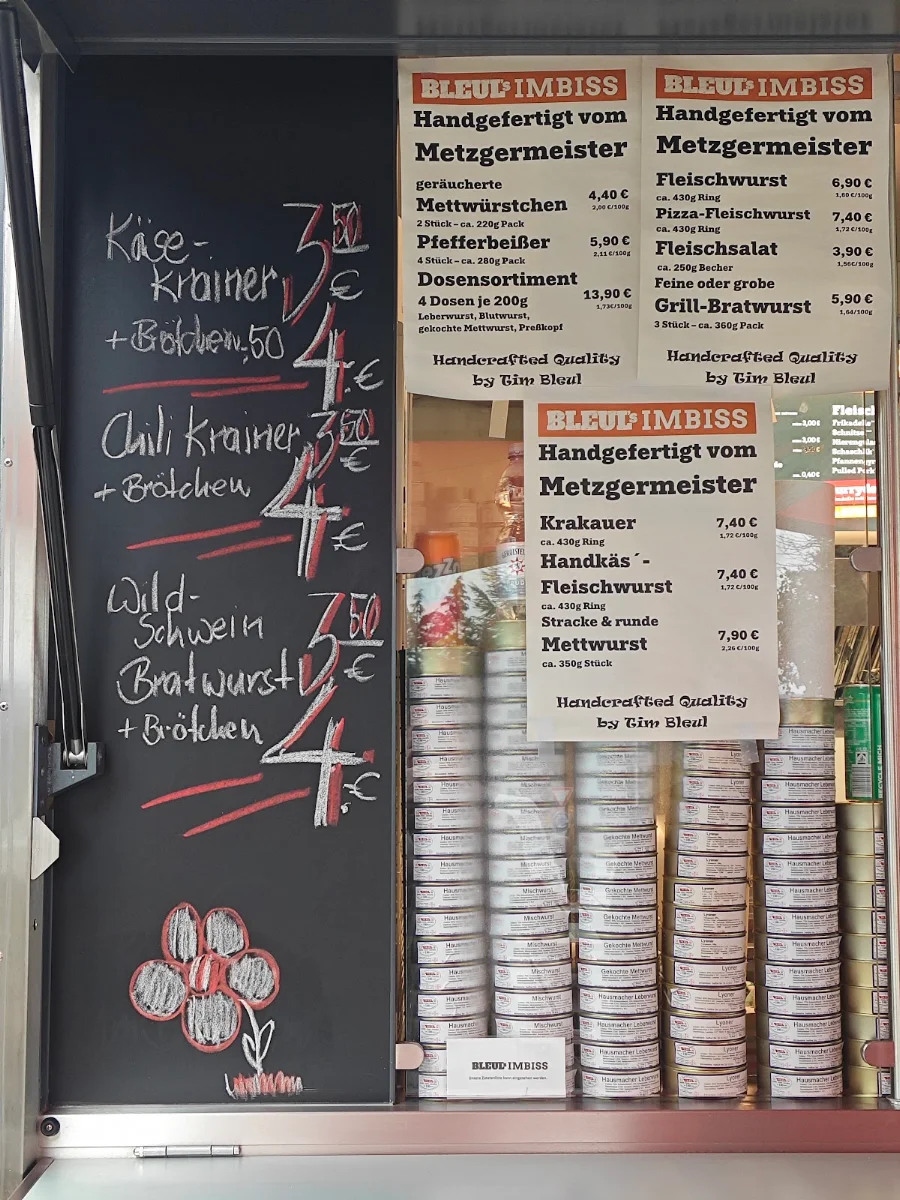 Käse-
Krainer 3,50 €
+ Brötchen -,50 4,- €
Chili Krainer 3,50 €
+ Brötchen 4,- €
Wild-
Schwein
Bratwurst 3,50 €
+ Brötchen 4,- €
BLEUL's IMBISS
Handgefertigt vom
Metzgermeister
geräucherte
Mettwürstchen 4,40 €
2 Stück – ca. 220g Pack 2,00 €/100g
Pfefferbeißer 5,90 €
4 Stück – ca. 280g Pack 2,11 €/100g
Dosensortiment
4 Dosen je 200g 13,90 €
Leberwurst, Blutwurst, 1,73€/100g
gekochte Mettwurst, Preßkopf
Handcrafted Quality
by Tim Bleul
BLEUL's IMBISS
Handgefertigt vom
Metzgermeister
Fleischwurst 6,90 €
ca. 430g Ring 1,60 €/100g
Pizza-Fleischwurst 7,40 €
ca. 430g Ring 1,72 €/100g
Fleischsalat 3,90 €
ca. 250g Becher 1,56€/100g
Feine oder grobe
Grill-Bratwurst 5,90 €
3 Stück – ca. 360g Pack 1,64/100g
Handcrafted Quality
by Tim Bleul
BLEUL's IMBISS
Handgefertigt vom
Metzgermeister
Krakauer 7,40 €
ca. 430g Ring 1,72 €/100g
Handkäs´-
Fleischwurst 7,40 €
ca. 430g Ring 1,72 €/100g
Stracke & runde
Mettwurst 7,90 €
ca. 350g Stück 2,26 €/100g
Handcrafted Quality
by Tim Bleul
3,00€
3,00€
0,40€
Pulled Pork
RECYCLE MICH
Mischwurst
Gekochte Mettwurst
Lyoner
Hausmacher
Hausmacher Leberwurst
BLEUL's IMBISS